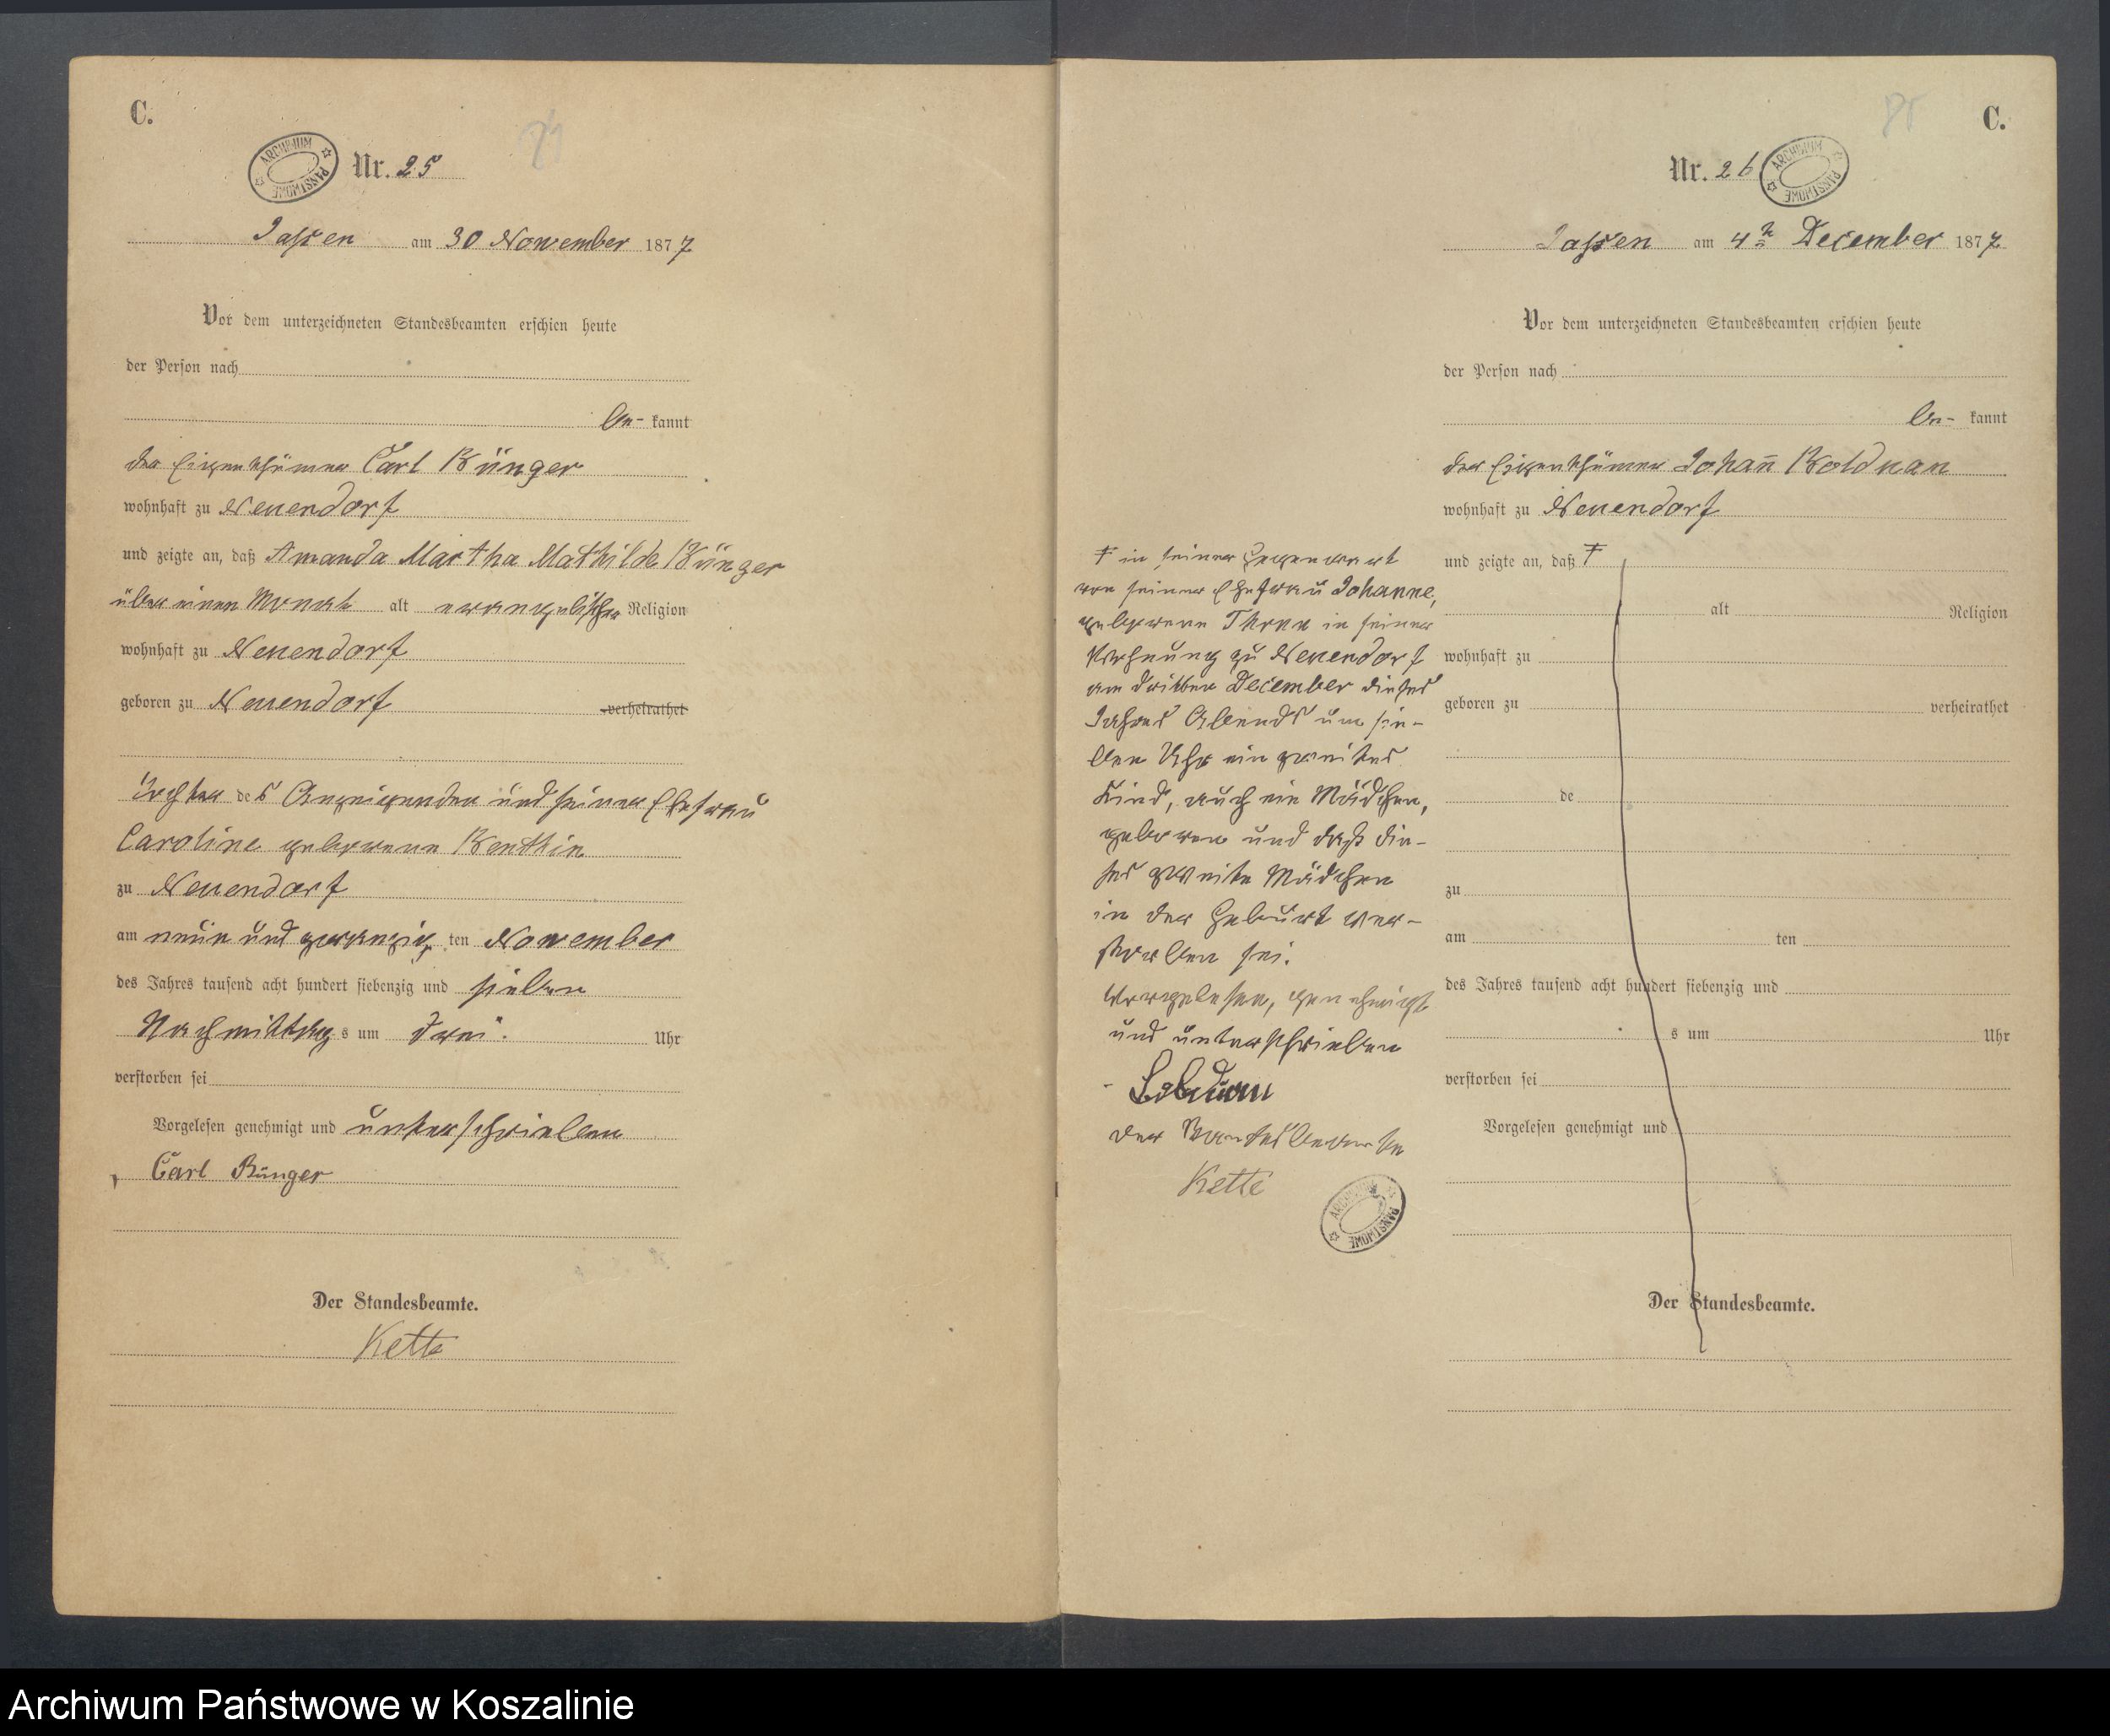 C.
84
ARCHIWUM PAŃSTWOWE
Nr. 25
Jassen am 30 November 1877
Vor dem unterzeichneten Standesbeamten erschien heute
der Person nach
be- kannt
der Eigenthümer Carl Bünger
wohnhaft zu Neuendorf
und zeigte an, daß Amanda Martha Mathilde Bünger
über einen Monat alt evangelischer Religion
wohnhaft zu Neuendorf
geboren zu Neuendorf verheirathet
Tochter des Anzeigenden und seiner Ehefrau
Caroline geborene Benthin
zu Neuendorf
am neun und zwanzig ten November
des Jahres tausend acht hundert siebenzig und sieben
Nachmittags um drei Uhr
verstorben sei
Vorgelesen genehmigt und unterschrieben
Carl Bünger
Der Standesbeamte.
Kette
85
C.
Nr. 26
ARCHIWUM PAŃSTWOWE
Jassen am 4ten December 1877
Vor dem unterzeichneten Standesbeamten erschien heute
der Person nach
be- kannt
der Eigenthümer Johann Bolduan
wohnhaft zu Neuendorf
und zeigte an, daß ‡
alt Religion
wohnhaft zu
geboren zu verheirathet
de
zu
am ten
des Jahres tausend acht hundert siebenzig und
s um Uhr
verstorben sei
Vorgelesen genehmigt und
Der Standesbeamte.
‡ in seiner Gegenwart
von seiner Ehefrau Johanne,
geborene in seiner
Wohnung zu Neuendorf
am dritten December dieses
Jahres Abends um sie-
ben Uhr ein zweites
Kind, auch ein Mädchen,
geboren und daß die-
ses zweite Mädchen
in der Geburt ver-
storben sei.
Vorgelesen, genehmigt
und unterschrieben
Bolduan
der Standesbeamte
Kette
ARCHIWUM PAŃSTWOWE
Archiwum Państwowe w Koszalinie